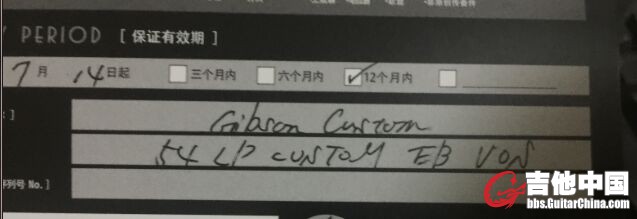 PERIOD [ 保证有效期 ]
7 月 14 日起 三个月内 六个月内 12个月内
Gibson Custom
54 LP CUSTOM EB VON
序列号 No.]
吉他中国
bbs.GuitarChina.com